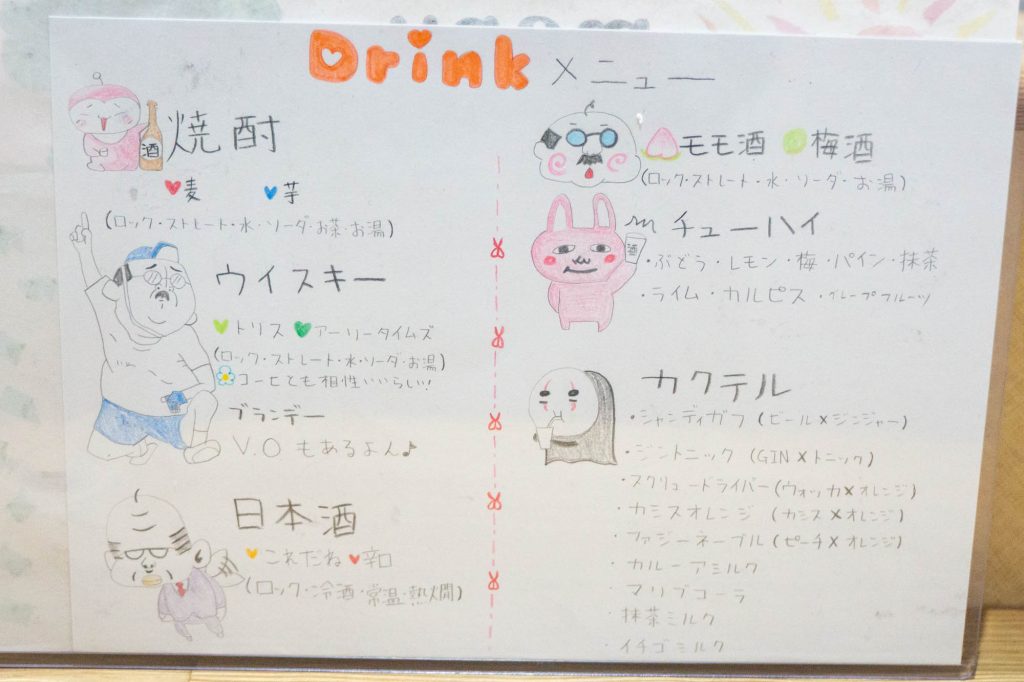 Drink メニュー
酒
焼酎
麦 芋
(ロック・ストレート・水・ソーダ・お茶・お湯)
ウイスキー
トリス アーリータイムズ
(ロック・ストレート・水・ソーダ・お湯)
コーヒとも相性いいらしい!
ブランデー
V.O もあるよん♪
日本酒
これだね 辛口
(ロック・冷酒・常温・熱燗)
モモ酒 梅酒
(ロック・ストレート・水・ソーダ・お湯)
酒
チューハイ
・ぶどう・レモン・梅・パイン・抹茶
・ライム・カルピス・グレープフルーツ
カクテル
・シャンディガフ (ビール×ジンジャー)
・ジントニック (GIN×トニック)
・スクリュードライバー (ウォッカ×オレンジ)
・カシスオレンジ (カシス×オレンジ)
・ファジーネーブル (ピーチ×オレンジ)
・カルーアミルク
・マリブコーラ
・抹茶ミルク
・イチゴミルク